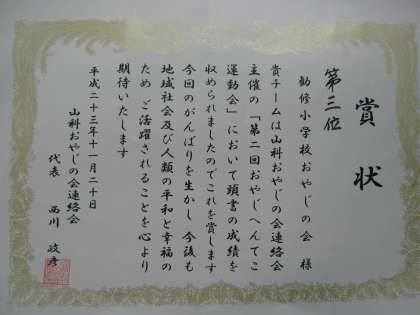 賞状
第三位
勧修小学校おやじの会 様
貴チームは山科おやじの会連絡会
主催の「第二回おやじへんてこ
運動会」において頭書の成績を
収められましたのでこれを賞します
今回のがんばりを生かし 今後も
地域社会及び人類の平和と幸福の
ため ご活躍されることを心より
期待いたします
平成二十三年十一月二十日
山科おやじの会連絡会
代表 西川 政彦